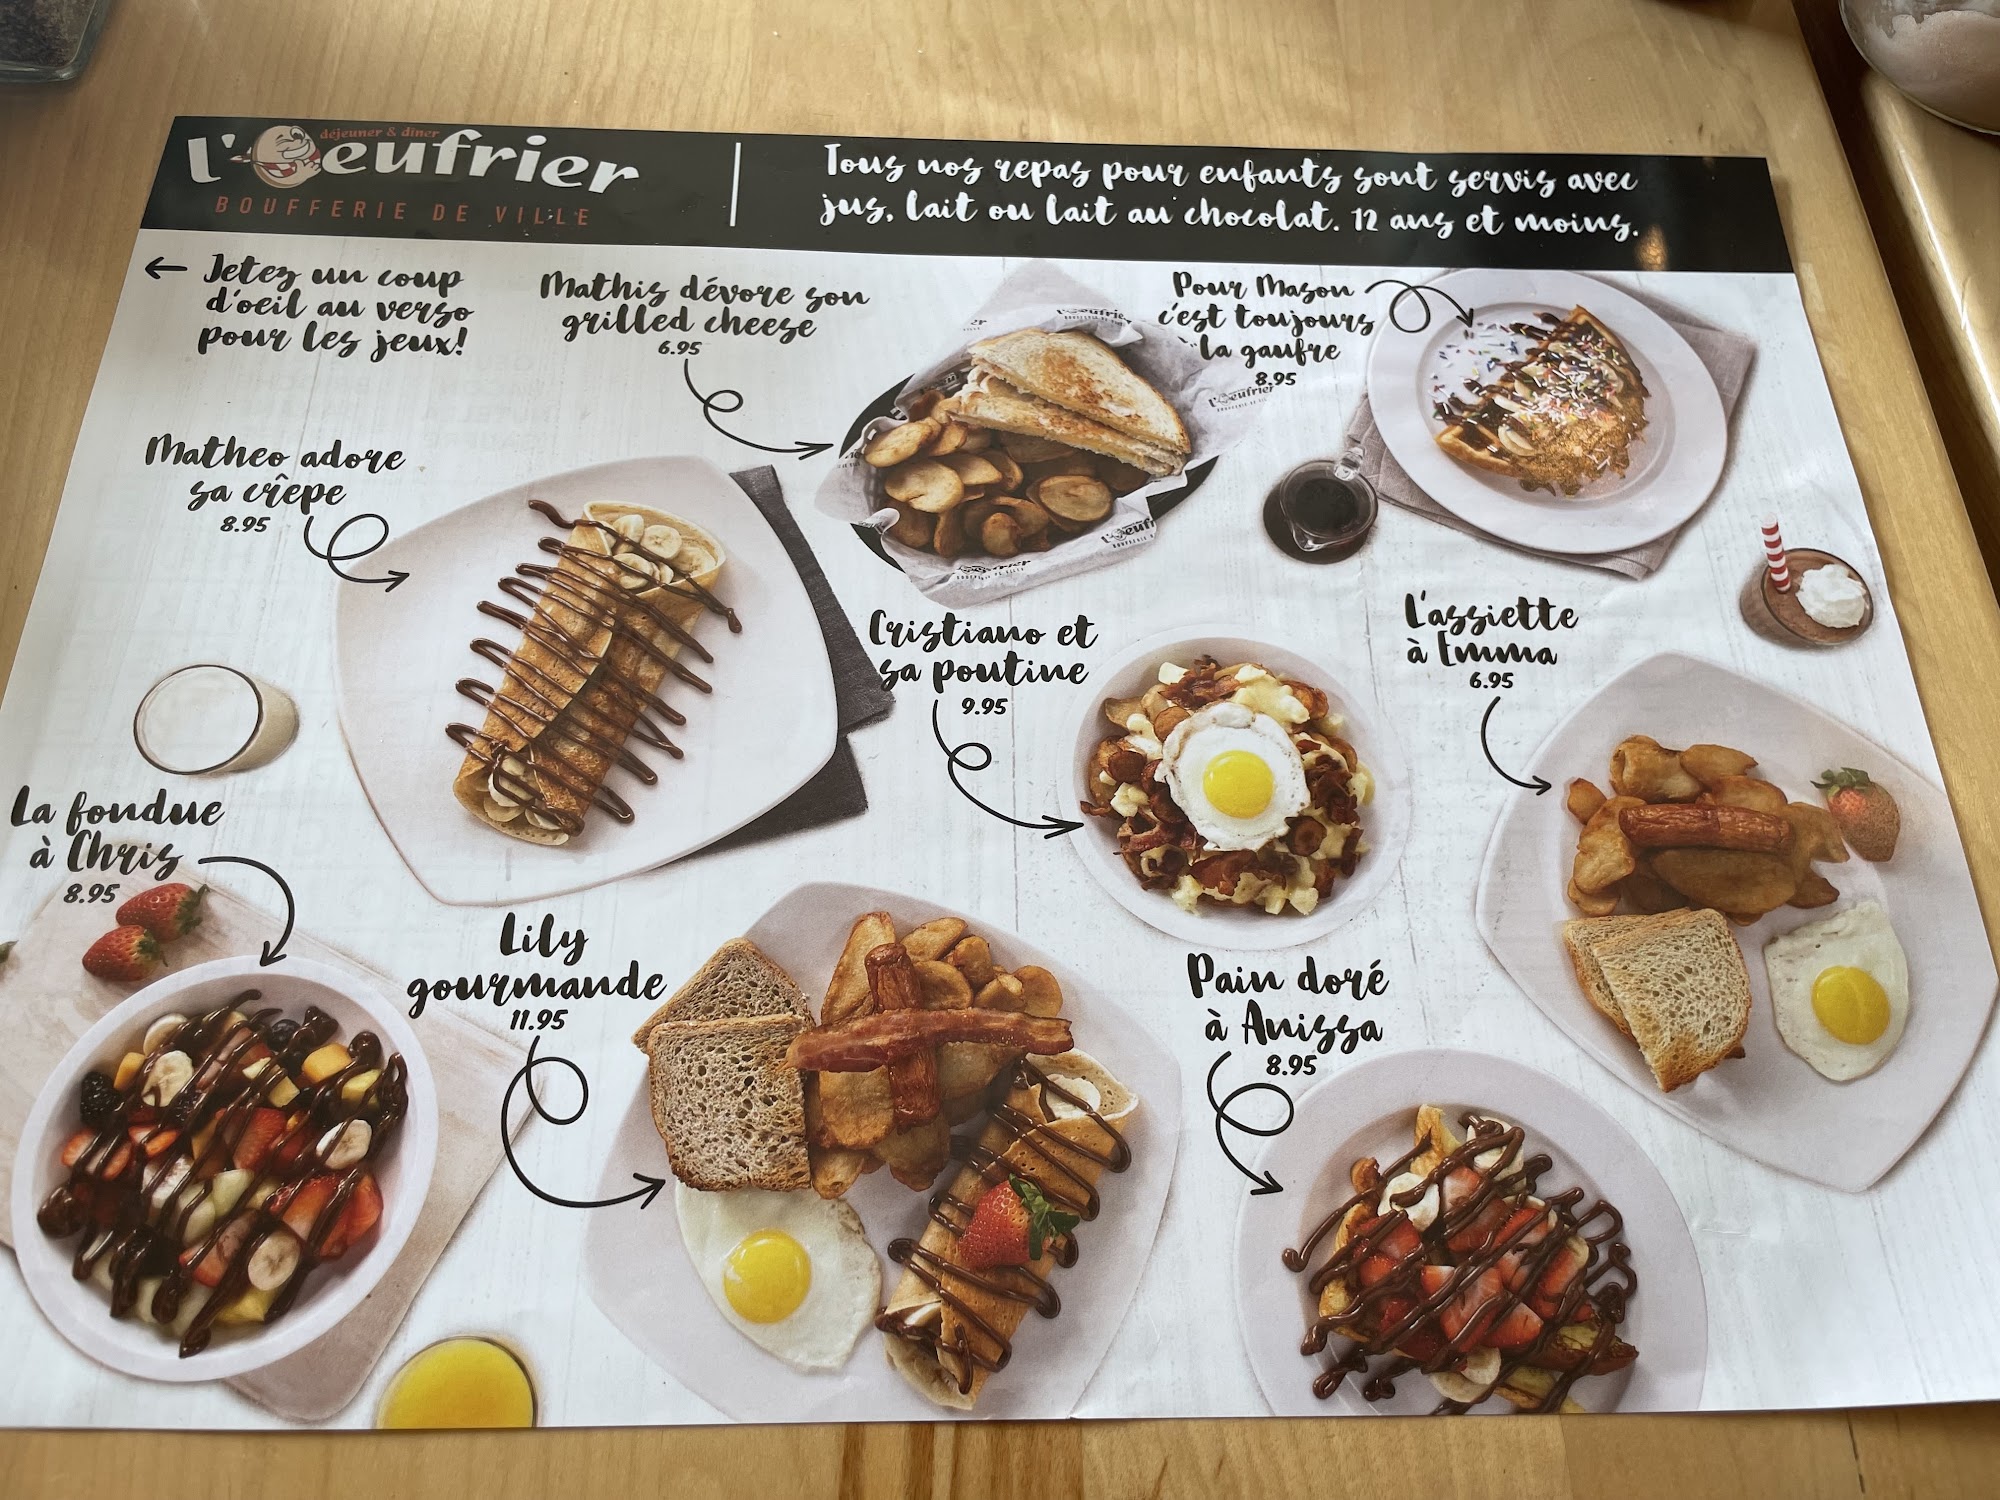 déjeuner & dîner
l'Oeufrier
BOUFFERIE DE VILLE
Tous nos repas pour enfants sont servis avec
jus, lait ou lait au chocolat. 12 ans et moins.
← Jetez un coup
d'oeil au verso
pour les jeux!
Mathis dévore son
grilled cheese
6.95
Pour Mason
c'est toujours
la gaufre
8.95
Matheo adore
sa crêpe
8.95
Cristiano et
sa poutine
9.95
L'assiette
à Emma
6.95
La fondue
à Chris
8.95
Lily
gourmande
11.95
Pain doré
à Anissa
8.95
l'Oeufrier
BOUFFERIE DE VILLE